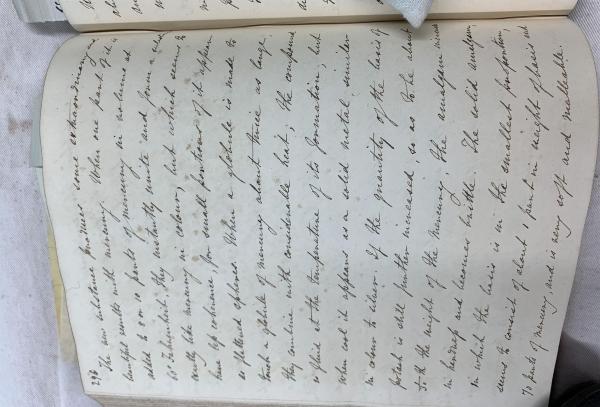 296
The new substance produces some extraordinary and
beautiful results with mercury. When one part of it is
added to 8 or 10 parts of mercury in volume at
60° Fahrenheit they instantly unite and form a
exactly like mercury in colour, but which seems to
have less coherence, for small portions of it appear
as flattened spheres. When a globule is made to
touch a globule of mercury about twice as large,
they combine with considerable heat; the compound
is fluid at the temperature of its formation; but
when cool it appears as a solid metal similar
in colour to silver. If the quantity of the basis of
potash is still further increased, so as to be about
the weight of the mercury the amalgam increases
in hardness and becomes brittle. The solid amalgam,
in which the basis is in the smallest proportion,
seems to consist of about 1 part in weight of basis and
70 parts of mercury, and is very soft and malleable.